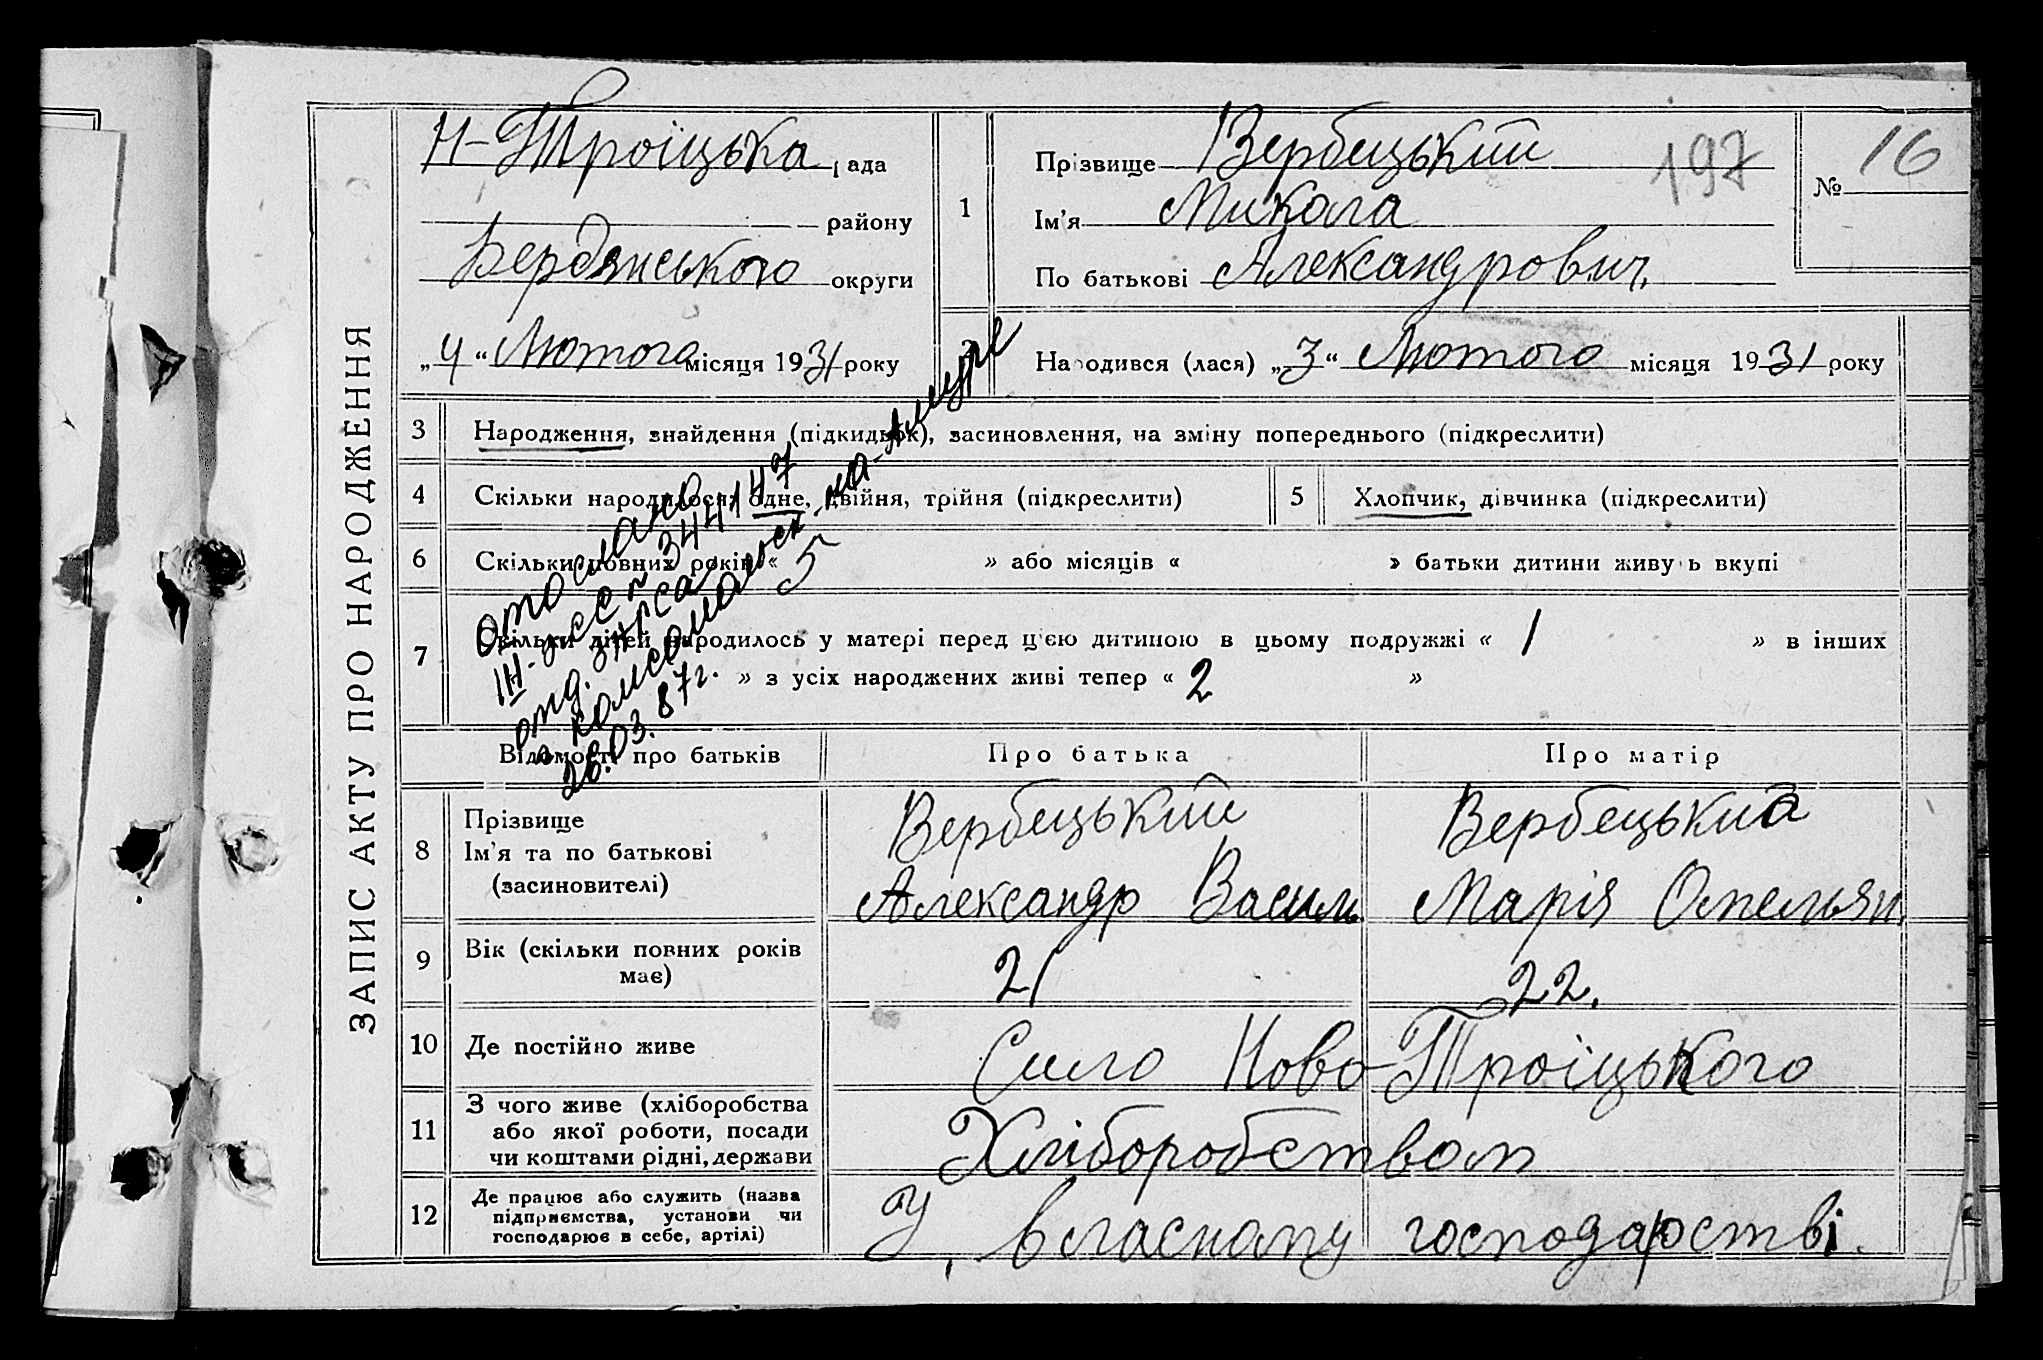 ЗАПИС АКТУ ПРО НАРОДЖЕННЯ
Н-Троїцька рада
району
Бердянського округи
„4“ Лютого місяця 1931 року
1
Прізвище Вербецький
197
Ім'я Микола
По батькові Александрович
№ 16
Народився (лася) „3“ Лютого місяця 1931 року
3 Народження, знайдення (підкидьок), засиновлення, на зміну попереднього (підкреслити)
4 Скільки народилося: одне, двійня, трійня (підкреслити)
5 Хлопчик, дівчинка (підкреслити)
6 Скільки повних років « » або місяців « » батьки дитини живуть вкупі
7 Скільки дітей народилось у матері перед цією дитиною в цьому подружжі « 1 » в інших
» з усіх народжених живі тепер « 2 »
отослано
III-ЖС № 344147
отд. ЗАГСа
г. Комсомольск-на-Амуре
26.03.87г.
Відомості про батьків Про батька Про матір
8 Прізвище
Ім'я та по батькові
(засиновителі)
Вербецький
Александр Василь
Вербецькиа
Марія Омельян.
9 Вік (скільки повних років має) 21 22.
10 Де постійно живе Село Ново-Троїцького
11 З чого живе (хліборобства
або якої роботи, посади
чи коштами рідні, держави
Хліборобством
12 Де працює або служить (назва
підприємства, установи чи
господарює в себе, артілі)
У власному господарстві.